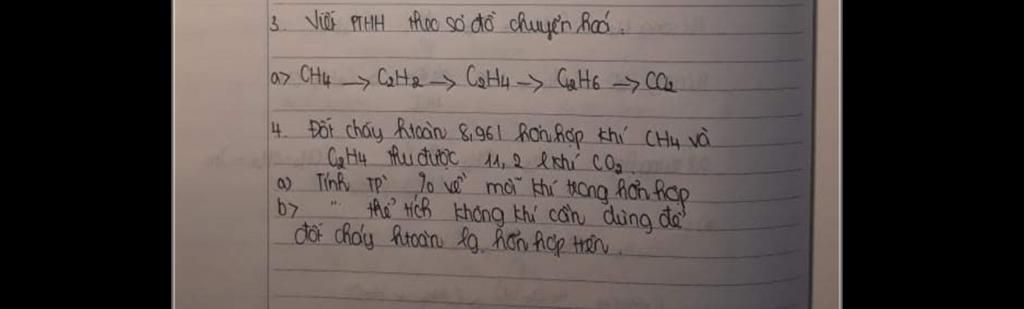 3. Viết PTHH theo sơ đồ chuyển hoá.
a> CH4 → C2H2 → C2H4 → C2H6 → CO2
4. Đốt cháy htoàn 8,96l hỗn hợp khí CH4 và
C2H4 thu được 11,2 l khí CO2.
a) Tính TP % về mỗi khí trong hỗn hợp
b> " thể tích không khí cần dùng để
đốt cháy htoàn lg hỗn hợp trên.